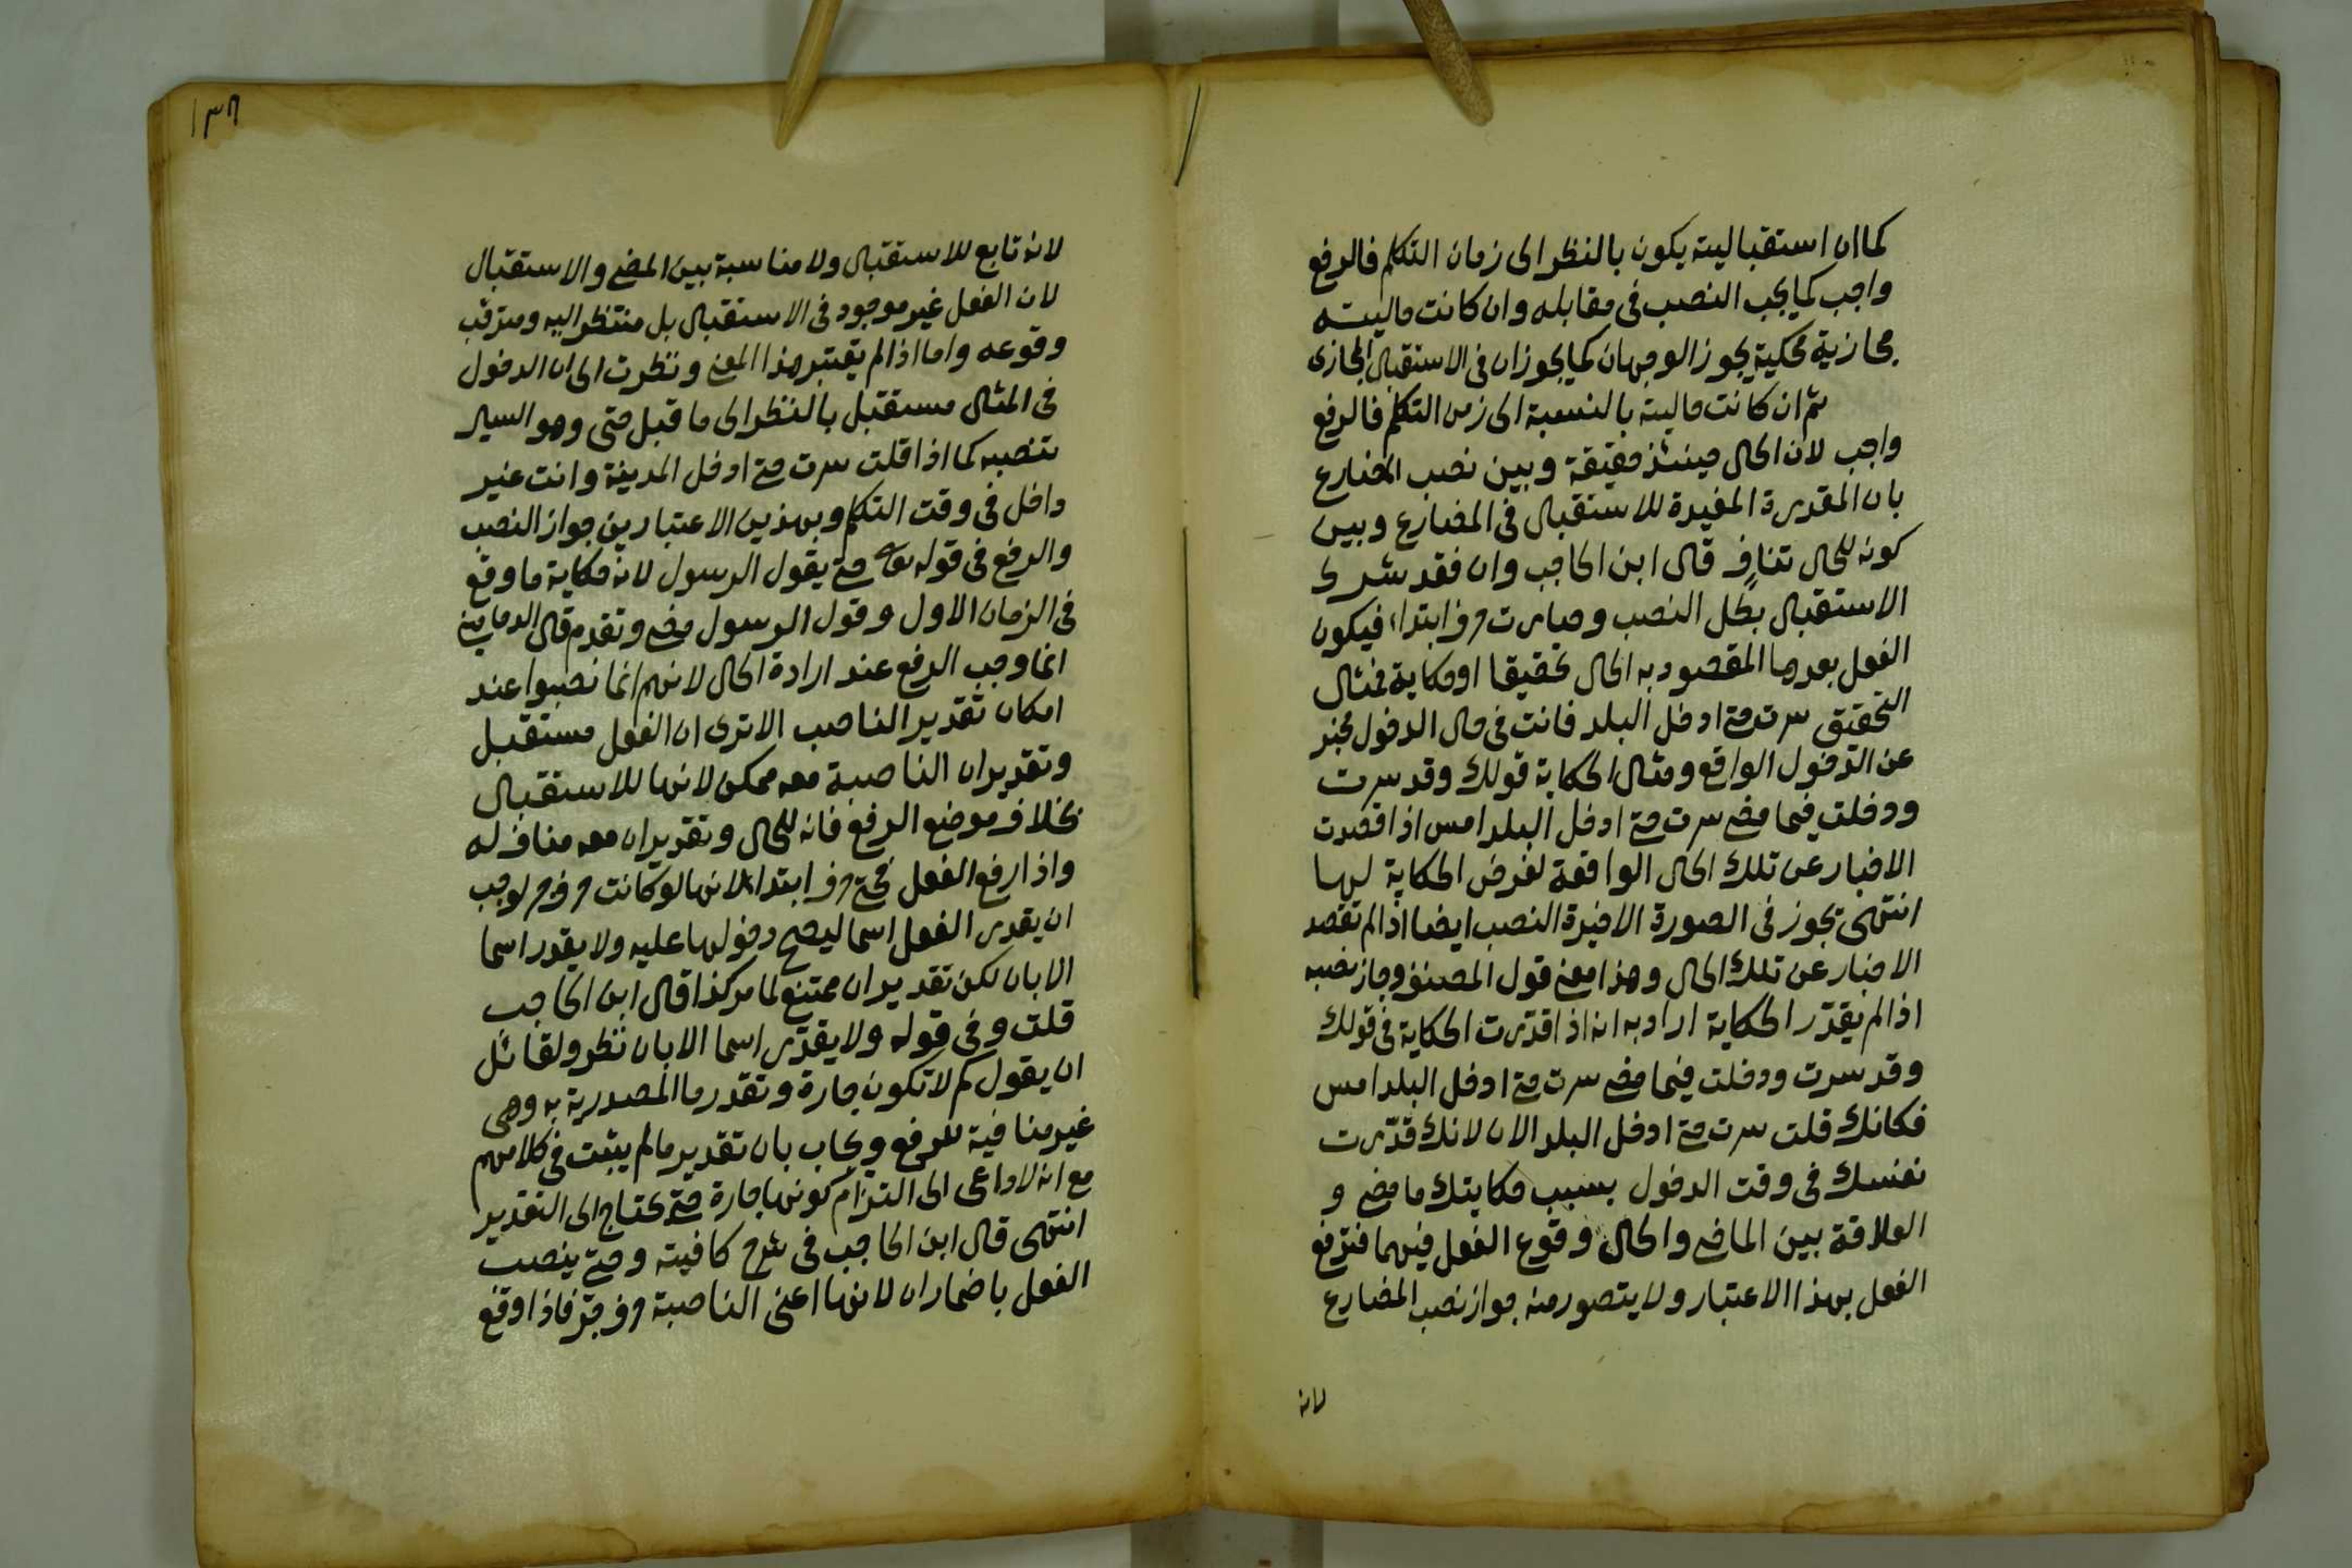 كما ان استقباليته يكون بالنظر الى زمان التكلم فالرفع
واجب كما يجب النصب فى مقابله وان كانت حاليته
مجازية محكية يجوز الوجهان كما يجوزان فى الاستقبال المجازى
ثم ان كانت حاليته بالنسبة الى زمن التكلم فالرفع
واجب لان الحال حينئذ حقيقة وبين نصب المضارع
بان المقدرة المفيدة للاستقبال فى المضارع وبين
كونه للحال تنافٍ قال ابن الحاجب وان فقد شرط
الاستقبال بطل النصب وصارت حرف ابتداء فيكون
الفعل بعدها المقصود به الحال تحقيقا او حكاية فمثال
التحقيق سرت حتى ادخل البلد فانت فى حال الدخول مخبر
عن الدخول الواقع ومثال الحكاية قولك وقد سرت
ودخلت فيما مضى سرت حتى ادخل البلد امس اذا قصدت
الاخبار عن تلك الحال الواقعة لغرض الحكاية لها
انتهى يجوز فى الصورة الاخيرة النصب ايضا اذا لم تقصد
الاخبار عن تلك الحال وهذا معنى قول المصنف وجاز نصبه
اذا لم يقدّر الحكاية اراد به انه اذا قدّرت الحكاية فى قولك
وقد سرت ودخلت فيما مضى سرت حتى ادخل البلد امس
فكانك قلت سرت حتى ادخل البلد الان لانك قدّرت
نفسك فى وقت الدخول بسبب حكايتك ما مضى و
العلاقة بين الماضى والحال وقوع الفعل فيهما فترفع
الفعل بهذا الاعتبار ولا يتصور منه جواز نصب المضارع
لانه
١٣٨
لانه تابع للاستقبال ولا مناسبة بين المضى والاستقبال
لان الفعل غير موجود فى الاستقبال بل منتظر اليه ومترقب
وقوعه واما اذا لم يعتبر هذا المعنى ونظرت الى ان الدخول
فى المثال مستقبل بالنظر الى ما قبل حتى وهو السير
تنصبه كما اذا قلت سرت حتى ادخل المدينة وانت غير
داخل فى وقت التكلم وبهذين الاعتبارين جواز النصب
والرفع فى قوله تعالى حتى يقول الرسول لانه حكاية ما وقع
فى الزمان الاول وقول الرسول مضى وتقدم قال الدمامينى
انما وجب الرفع عند ارادة الحال لانهم انما نصبوا عند
امكان تقدير الناصب الا ترى ان الفعل مستقبل
وتقدير ان الناصبة معه ممكن لانها للاستقبال
بخلاف موضع الرفع فانه للحال وتقدير ان معه مناف له
واذا رفع الفعل فحتى حرف ابتداء لانها لو كانت حرف جر لوجب
ان يقدر الفعل اسما ليصح دخولها عليه ولا يقدر اسما
الا بان لكن تقدير ان ممتنع لما مر كذا قال ابن الحاجب
قلت وفى قوله ولا يقدّر اسما الا بان نظر ولقائل
ان يقول لم لا تكون جارة وتقدر ما المصدرية به وهى
غير منافية للرفع ويجاب بان تقدير ما لم يثبت فى كلامهم
مع انه لا داعى الى التزام كونها جارة حتى يحتاج الى التقدير
انتهى قال ابن الحاجب فى شرح كافيته وحتى ينصب
الفعل باضمار ان لانها اعنى الناصبة حرف جرّ فاذا وقع